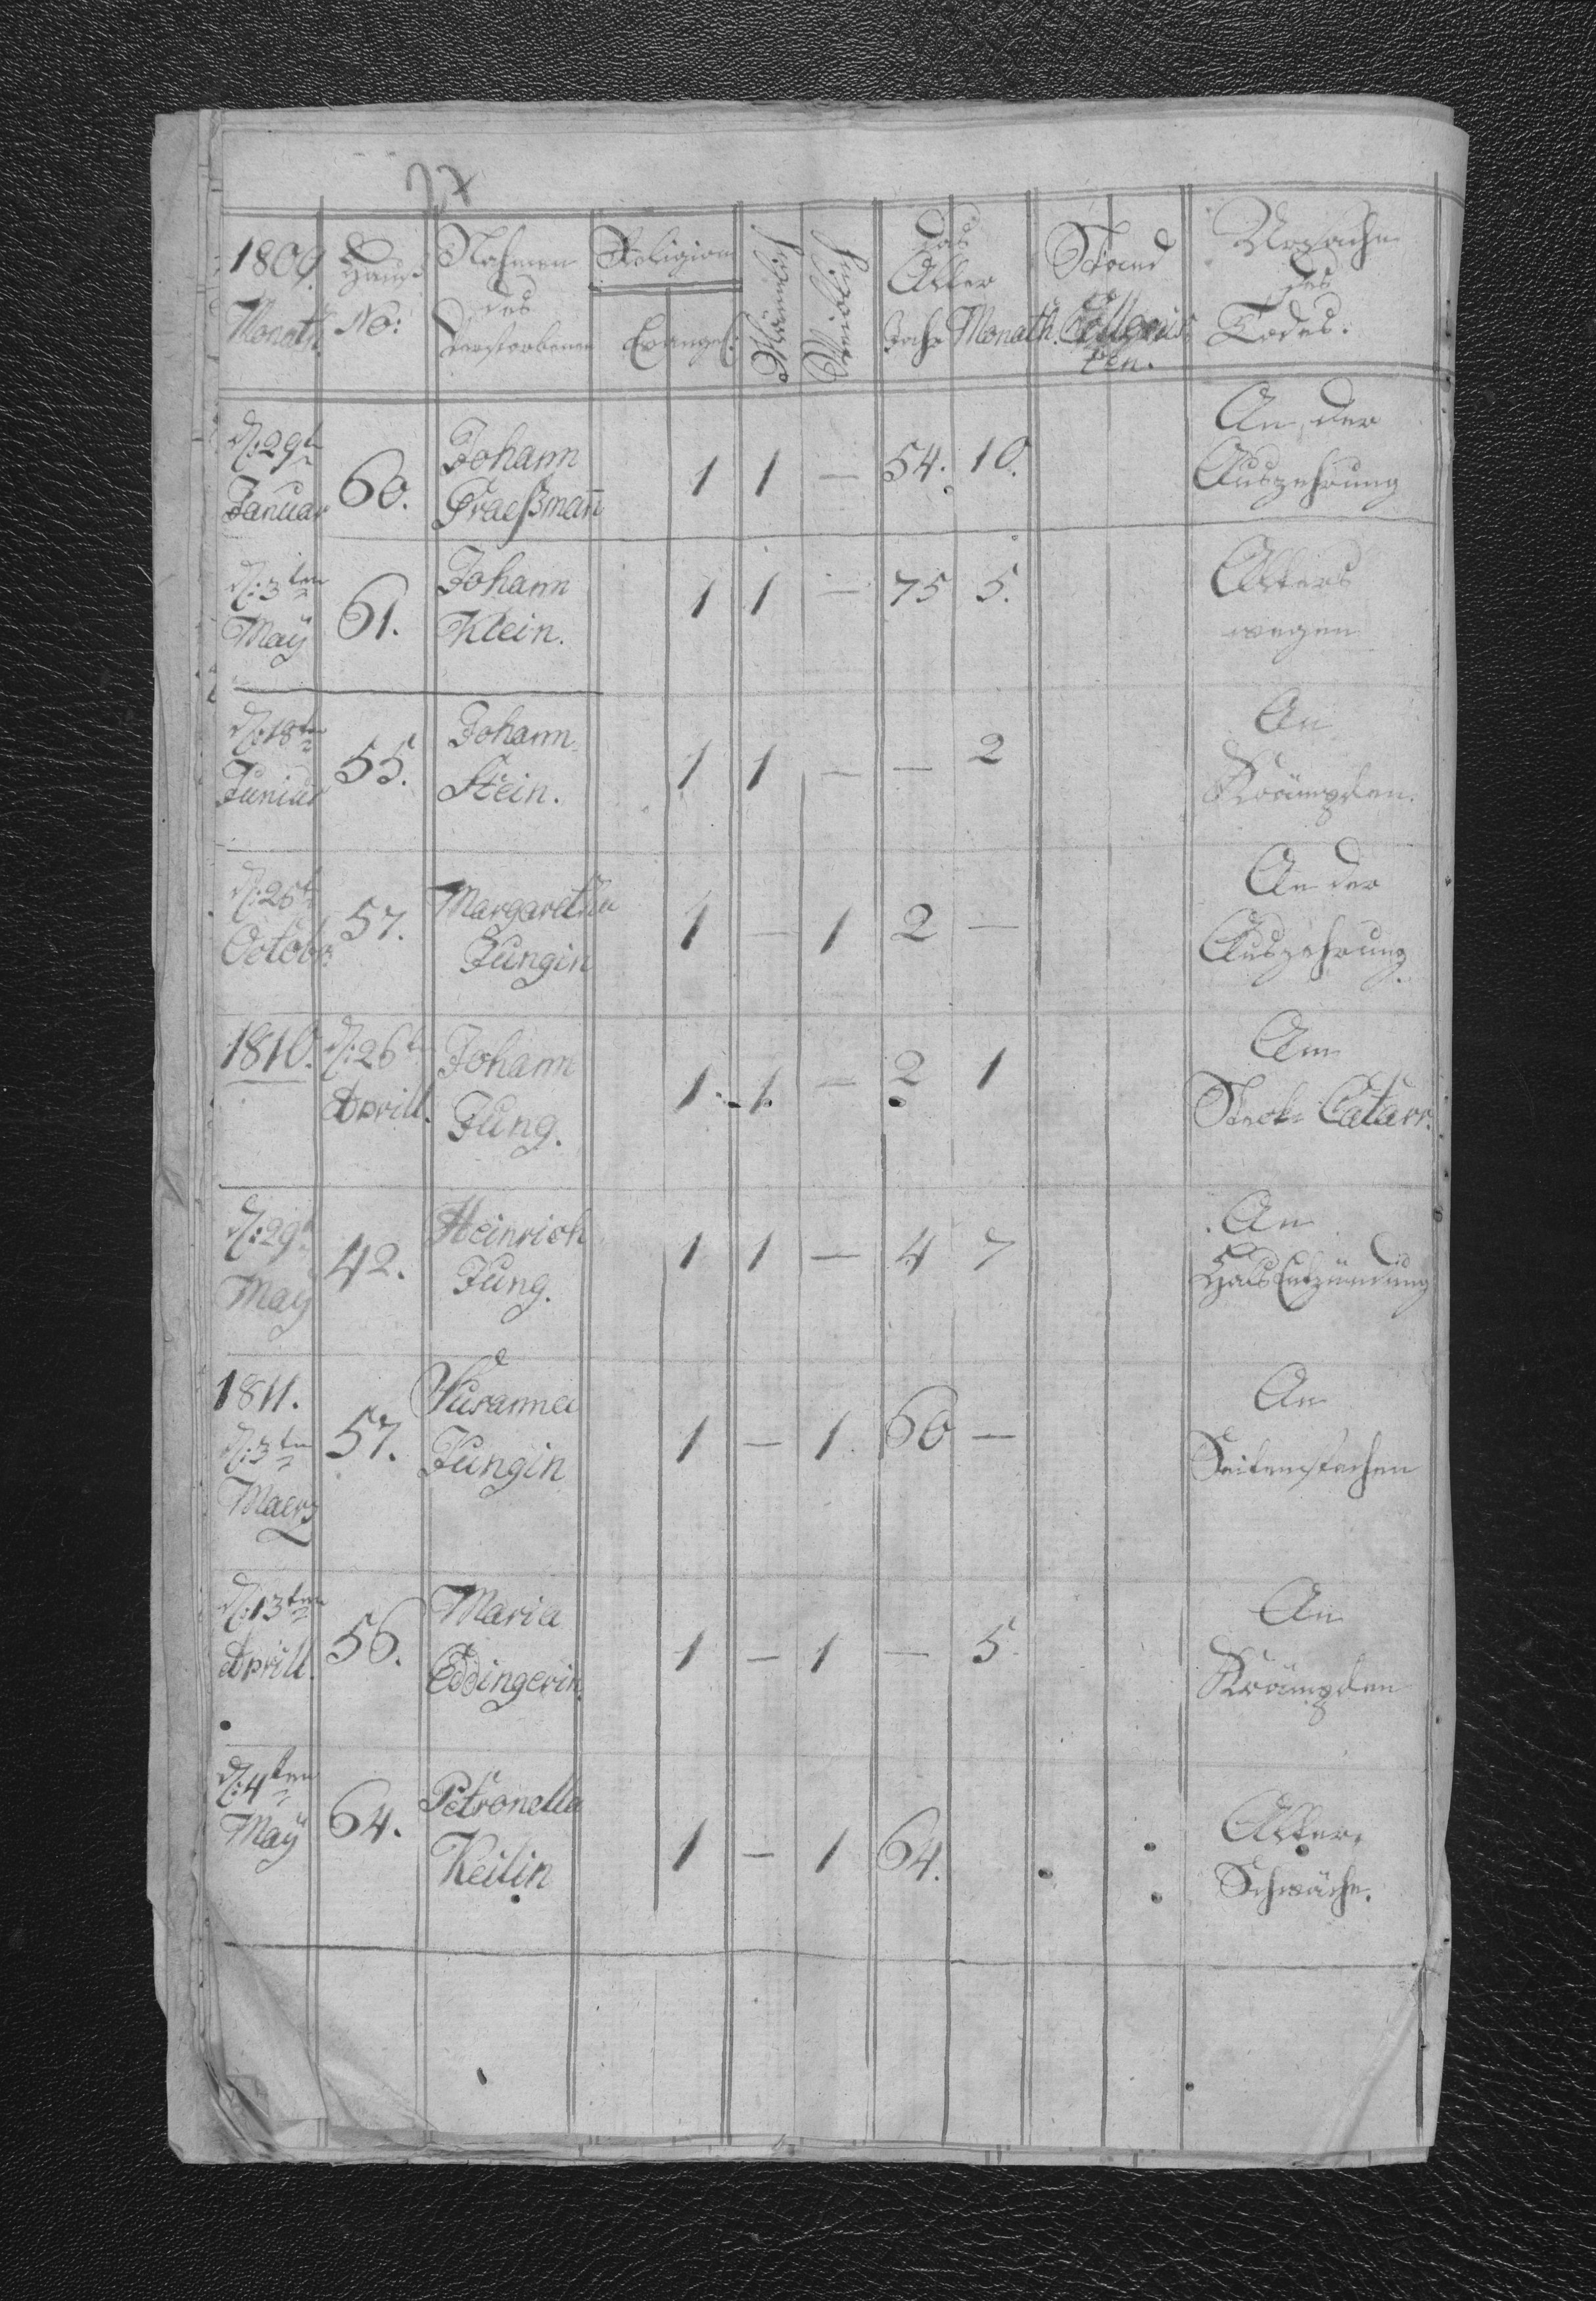 27
1809. Hauß Nahmen Religion Männlich Weiblich Das Stand Ursache
des Alter des
Monath. No: Verstorbenen Evangel: Jahr Monath. Todes.
d: 29t An der
Januar 60. Johann 1 1 — 54. 10. Auszehrung
Graeßman̄
d: 3ten Johann Alters
May 61. Klein. 1 1 — 75 5. wegen
d: 18ten Johann An
Junius 55. Stein. 1 1 — — 2 Krämpfen.
d: 26t Margaretha An der
Octobr: 57. Jungin 1 — 1 2 — Auszehrung.
1810. d: 26t Johann Am
Aprill. Jung. 1. 1. — 2 1 Steck= Catarr.
d: 29t Heinrich An
May 42. Jung. 1 1 — 4 7 Hals Entzündung
1811. Susanna An
d: 3ten 57. Jungin 1 — 1. 60 — Seitenstechen
Maerz
d: 13ten Maria An
Aprill. 56. Eddingerin 1 — 1 — 5. Krämpfen
d: 4ten Petronella Alters
May 64. Keilin 1 — 1 64. Schwäche.